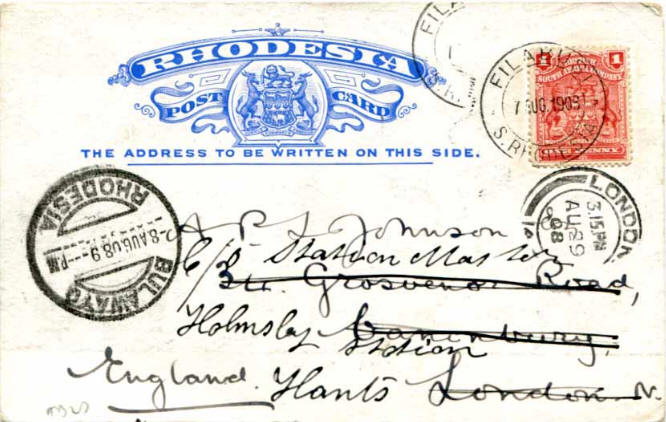 RHODESIA
POST CARD
THE ADDRESS TO BE WRITTEN ON THIS SIDE.
FILA
S.R
FILABUSI
7 AUG 1908
S. RHODESIA
1 1
BRITISH
SOUTH AFRICA COMPANY
ONE PENNY
RHODESIA
28 AUG 08 9 PM
BULAWAYO
LONDON
3.15 PM
AU 29
08
A P L Johnson
C/o Station Master
34. Grosvenor Road,
Holmsley Canonbury,
Station
England. Hants London N.